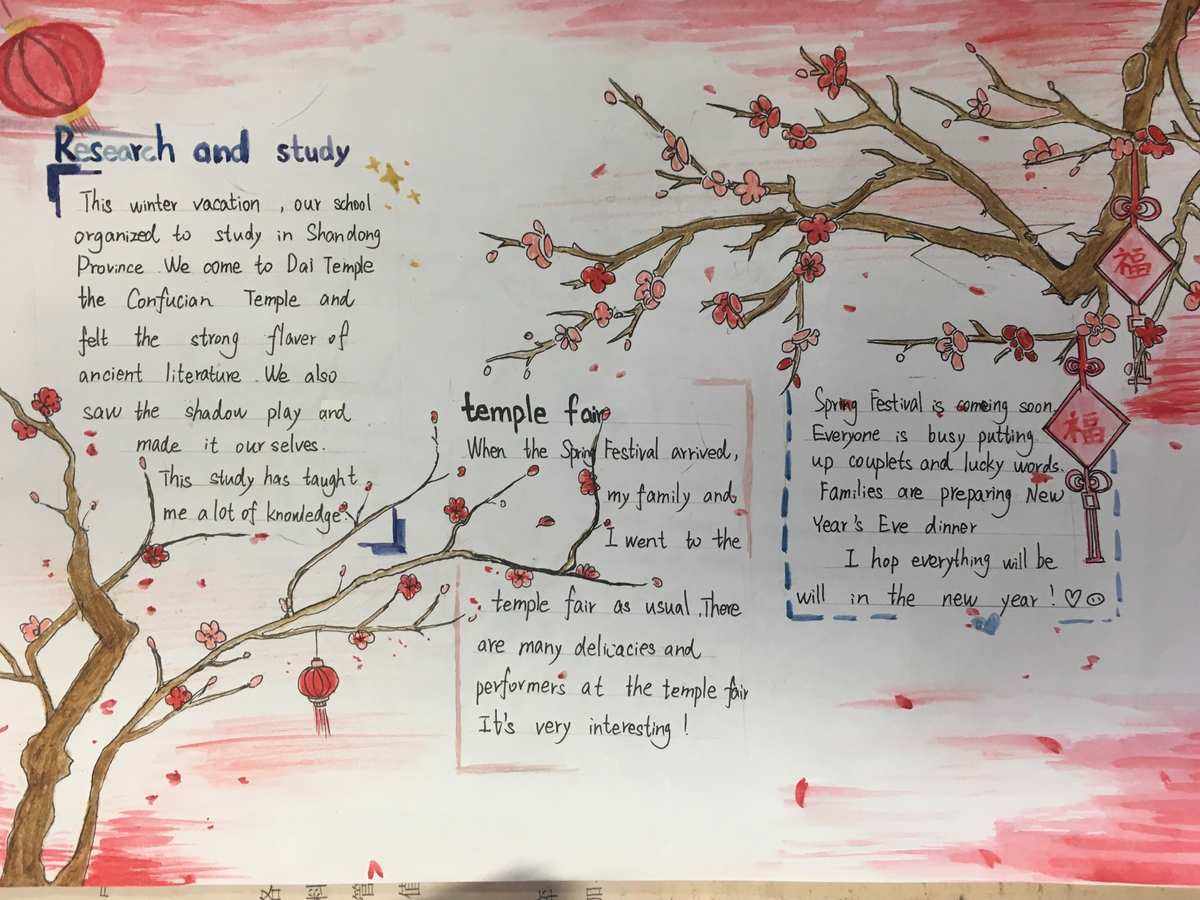 Research and study
This winter vacation , our school
organized to study in Shandong
Province .We come to Dai Temple
the Confucian Temple and
felt the strong flaver of
ancient literature .We also
saw the shadow play and
made it ourselves.
This study has taught
me a lot of knowledge.
temple fair
When the Spring Festival arrived,
my family and
I went to the
temple fair as usual .There
are many delicacies and
performers at the temple fair
It's very interesting !
Spring Festival is comeing soon.
Everyone is busy putting
up couplets and lucky words.
Families are preparing New
Year's Eve dinner
I hop everything will be
will in the new year !
福
福